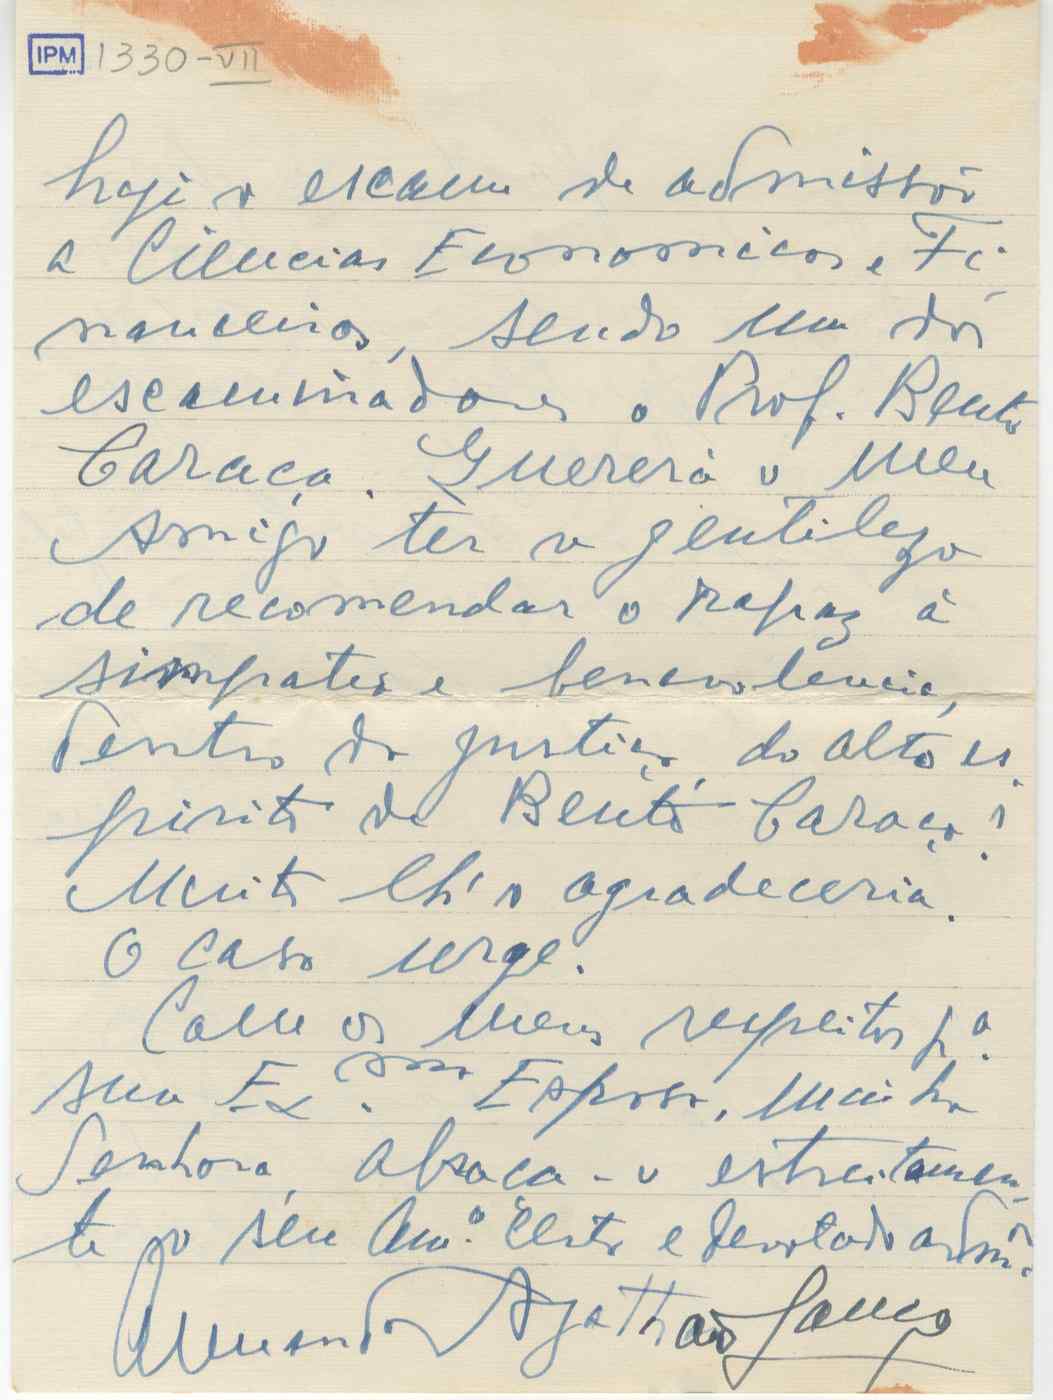 IPM 1330-VII
hoje o escame de admissão
a Ciencias Economicas e Fi-
nanceiras, sendo um dos
escaminadores o Prof. Bento
Caraça. Quererá o meu
Amigo ter a gentileza
de recomendar o rapaz à
simpatia e benevolencia,
dentro da justiça, do alto es-
pirito de Bento Caraça?
Muito lh'o agradeceria.
O caso urge.
Com os meus respeitos pª.
sua Ex.ma Esposa, minha
Senhora, abraça-o estreitamen-
te o seu Amº. Certo e devotado adm.ºr
Armando Agathão Lança